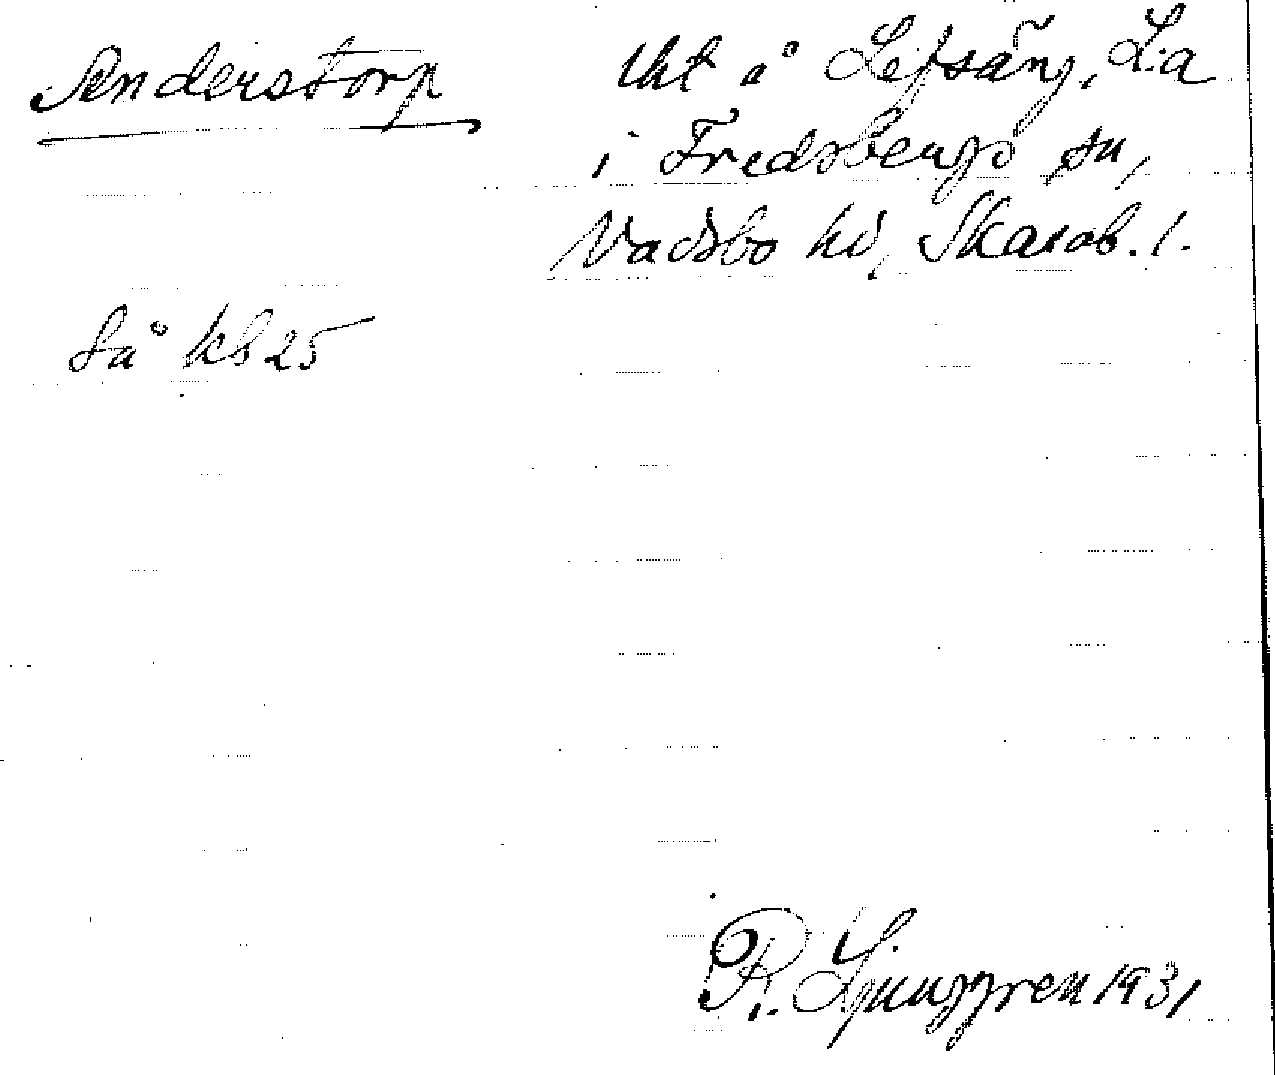 Anderstorp
Uht å Lefsäng, L:a
i Fredsbergs sn,
Vadsbo hd, Skarab. l.
så kb 25
R. Ljunggren 1931